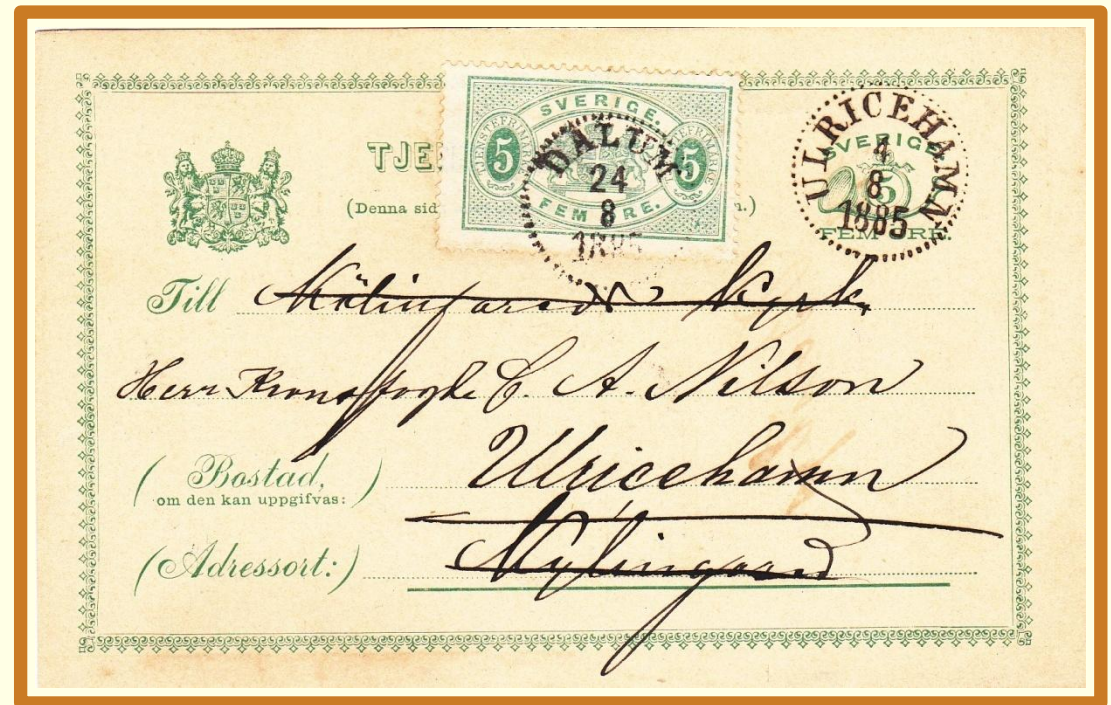 TJE
(Denna sid n.)
SVERIGE.
TJENSTEFRIMÄRKE
5 5
FEM ÖRE.
DALUM
24
8
1885
ULRICEHAMN
4
8
1885
SVERIGE
5
FEM ÖRE
Till Kyrk.
Herr Kronofogde C. A. Nilson
(Bostad,
om den kan uppgifvas:)
Ulricehamn
(Adressort:)